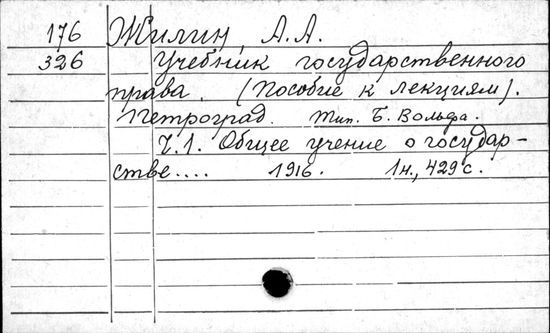 176 Жилин, А.А.
326 Учебник государственного
права. (Пособие к лекциям).
Петроград. Тип. Б. Вольфа.
Ч.1. Общее учение о государ-
стве.... 1916. 1н., 429 с.